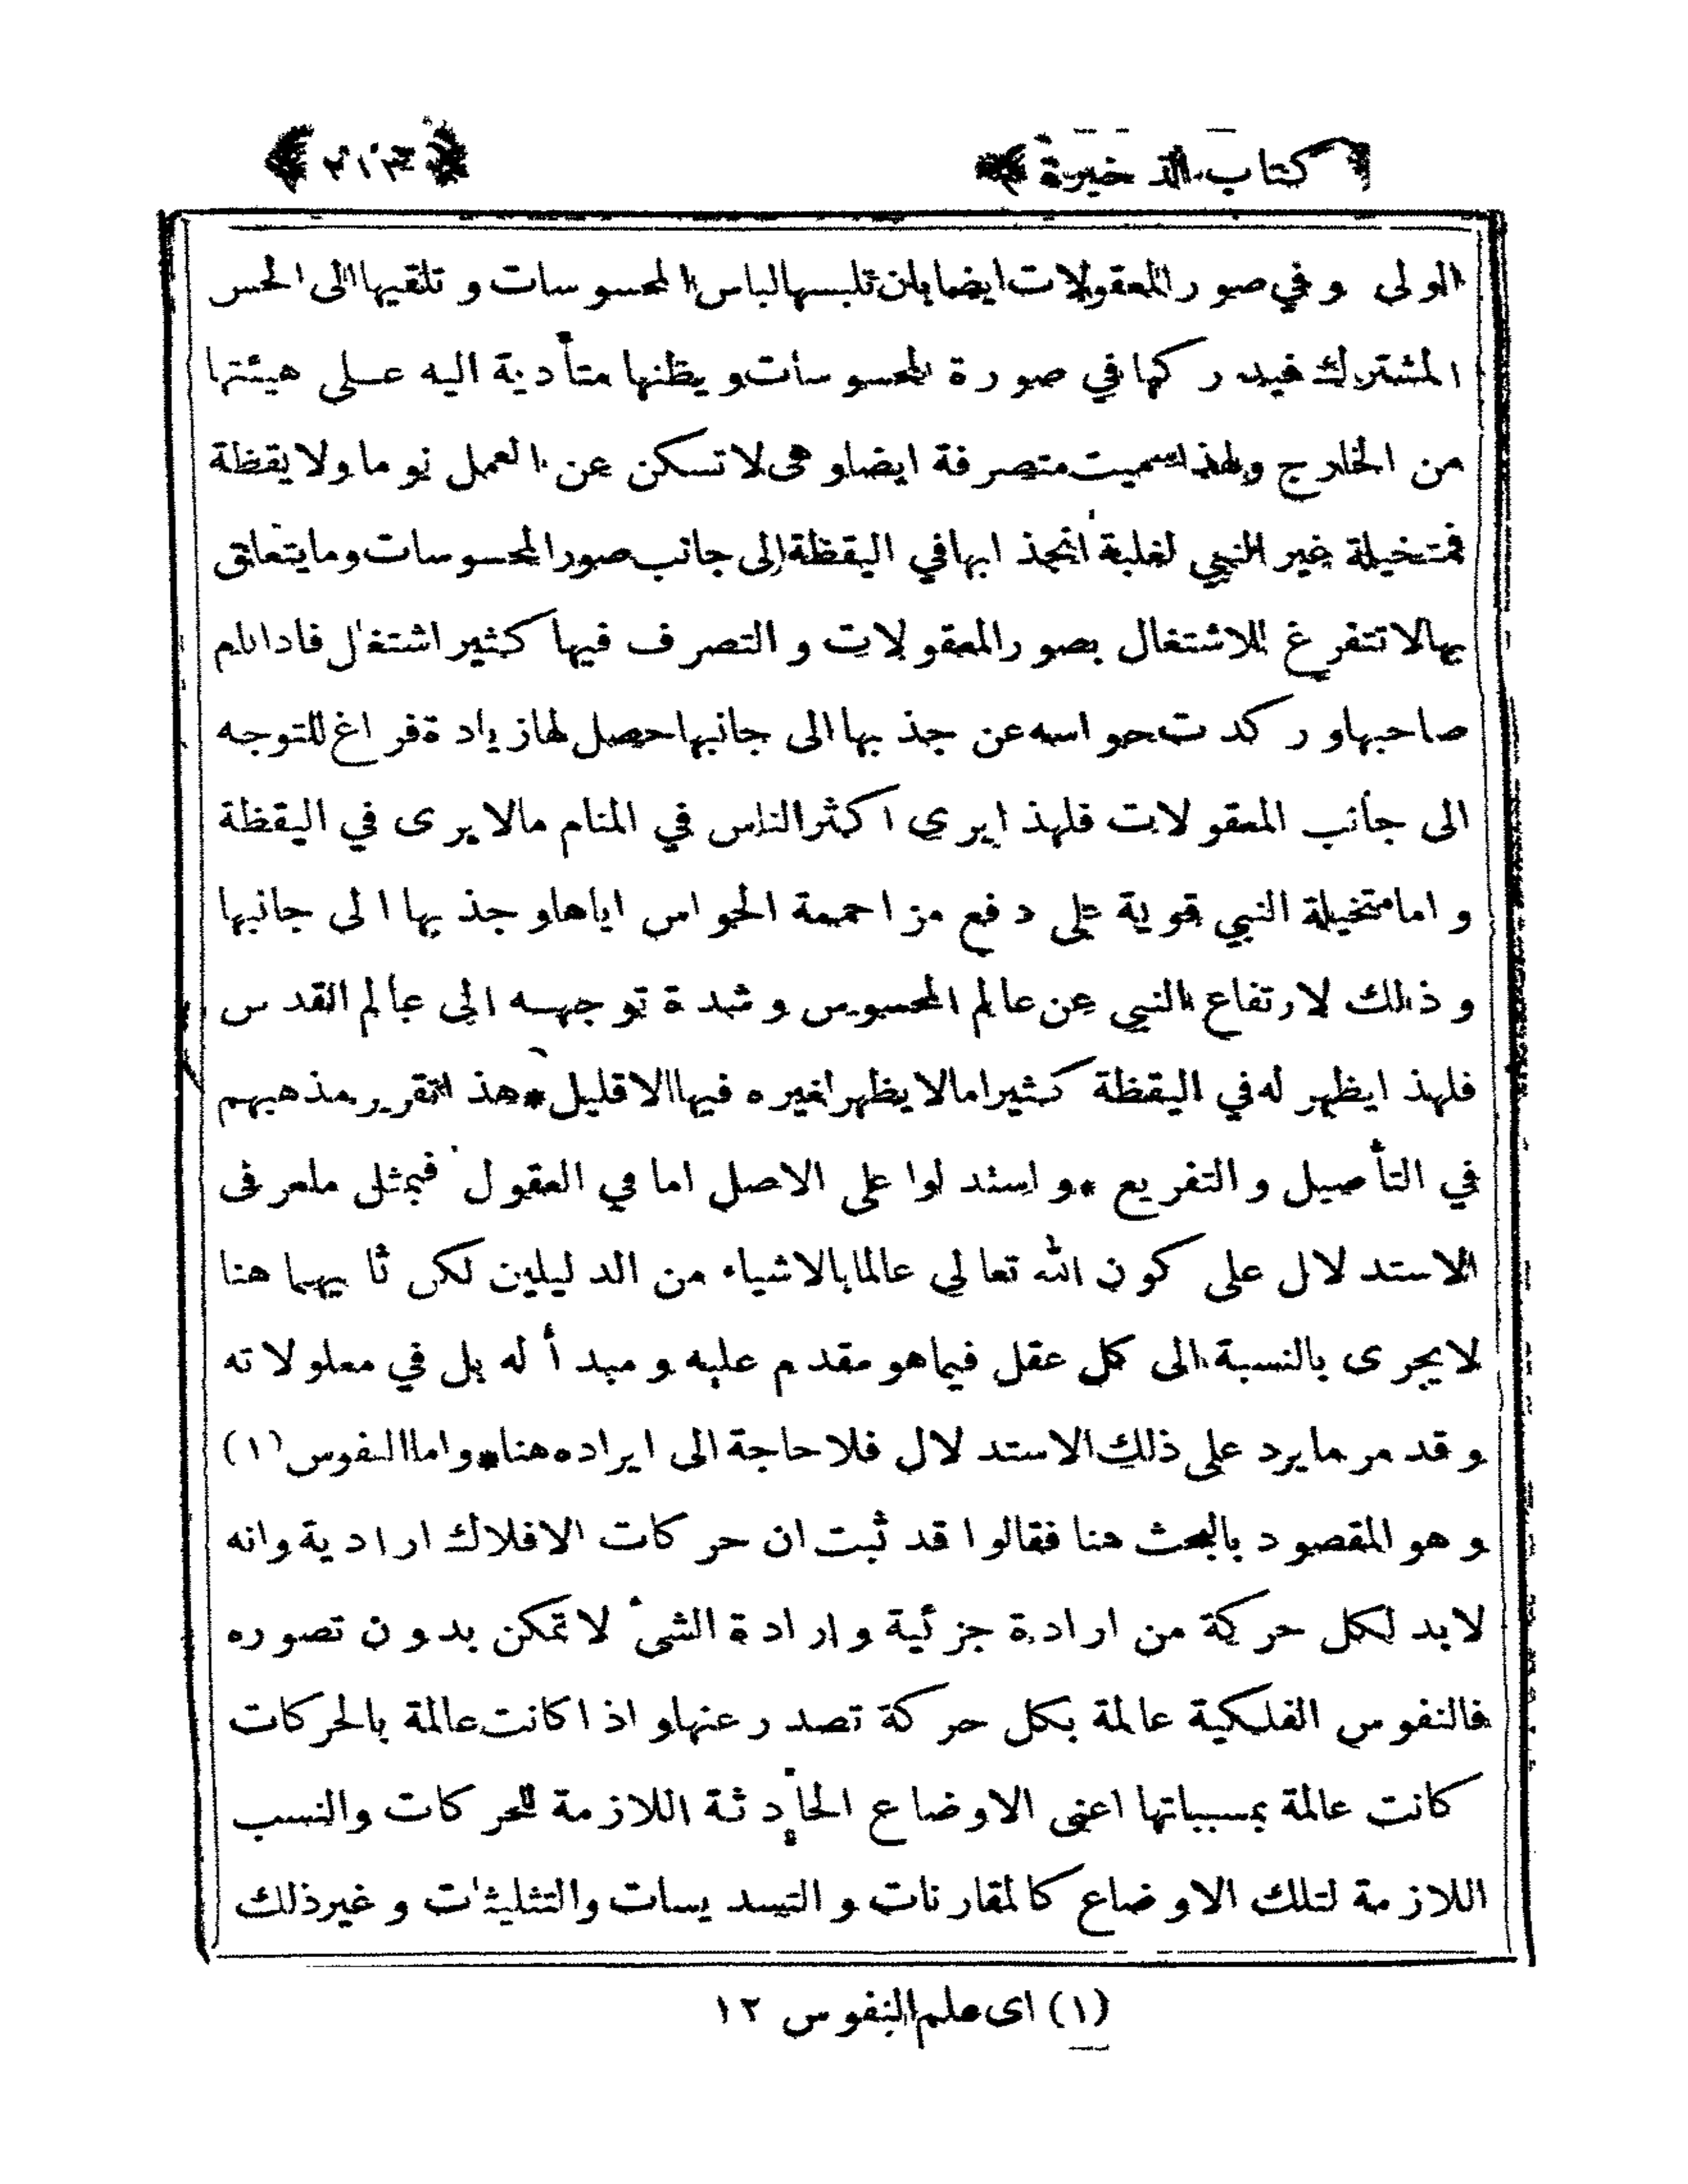 كتاب الذخيرة
﴿٢١٣﴾
الولى وفي صور المعقولات ايضا بان تلبسها لباس المحسوسات وتلقيها الى الحس
المشترك فيدركها في صورة المحسوسات ويظنها متأدية اليه على هيئتها
من الخارج ولهذا سميت متصرفة ايضا وهى لا تسكن عن العمل نوما ولا يقظة
فمتخيلة غير النبي لغلبة انجذابها في اليقظة الى جانب صور المحسوسات وما يتعلق
بها لا تتفرغ للاشتغال بصور المعقولات والتصرف فيها كثير اشتغال فاذا نام
صاحبها وركدت حواسه عن جذبها الى جانبها حصل لها زيادة فراغ للتوجه
الى جانب المعقولات فلهذا يرى اكثر الناس في المنام مالا يرى في اليقظة
واما متخيلة النبي قوية على دفع مزاحمة الحواس اياها وجذبها الى جانبها
وذلك لارتفاع النبي عن عالم المحسوس وشدة توجهه الى عالم القدس
فلهذا يظهر له في اليقظة كثيرا مالا يظهر لغيره فيها الا قليل * هذا تقرير مذهبهم
في التأصيل والتفريع * واستدلوا على الاصل اما في العقول فبمثل ما عرف في
الاستدلال على كون الله تعالى عالما بالاشياء من الدليلين لكن ثانيهما هنا
لا يجرى بالنسبة الى كل عقل فيما هو مقدم عليه ومبدأ له بل في معلولاته
وقد مر ما يرد على ذلك الاستدلال فلا حاجة الى ايراده هنا * واما النفوس (١)
وهو المقصود بالبحث هنا فقالوا قد ثبت ان حركات الافلاك ارادية وانه
لابد لكل حركة من ارادة جزئية وارادة الشىء لا تمكن بدون تصوره
فالنفوس الفلكية عالمة بكل حركة تصدر عنها واذا كانت عالمة بالحركات
كانت عالمة بمسبباتها اعنى الاوضاع الحادثة اللازمة للحركات والنسب
اللازمة لتلك الاوضاع كالمقارنات والتسديسات والتثليثات وغير ذلك
(١) اى علم النفوس ١٢